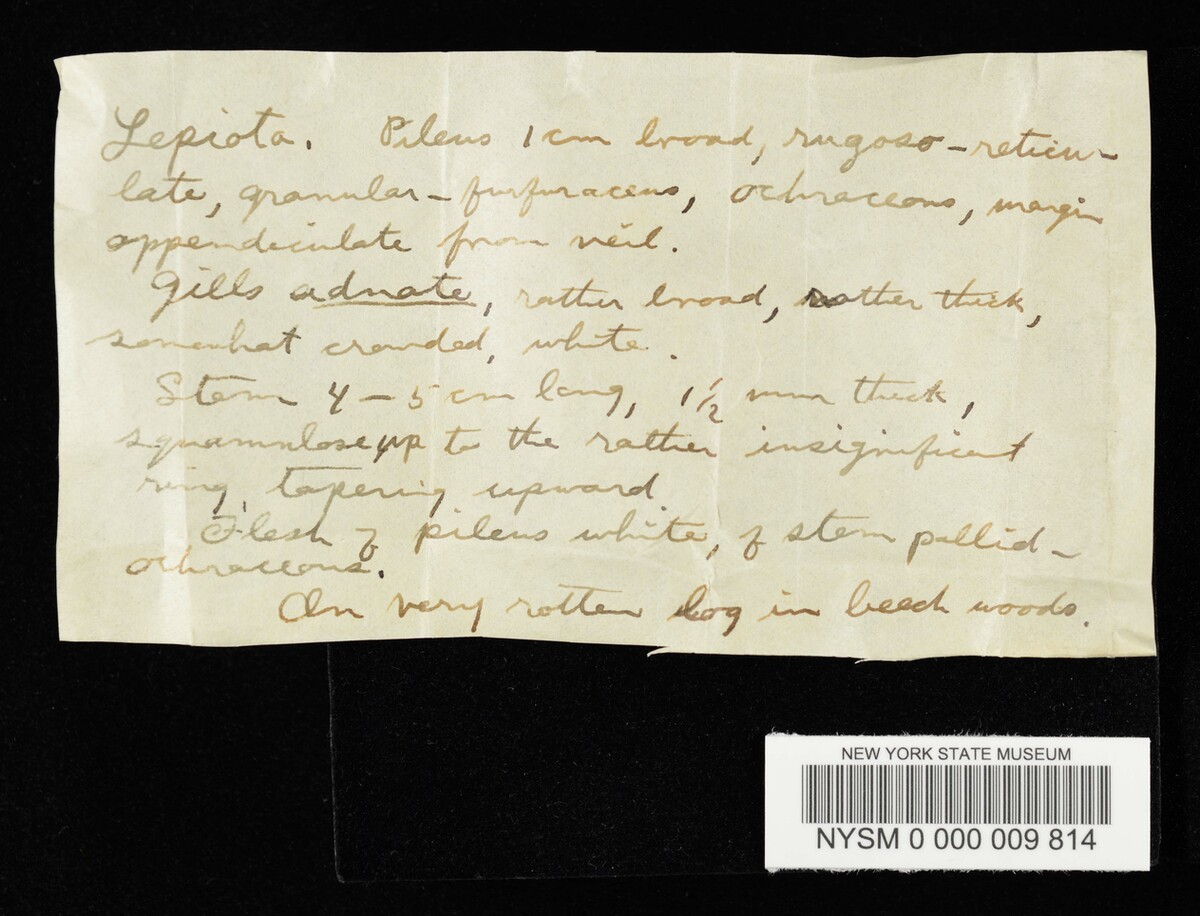 Lepiota. Pileus 1 cm broad, rugoso-reticu-
late, granular-furfuraceus, ochraceous, margin
appendiculate from veil.
Gills adnate, rather broad, rather thick,
somewhat crowded, white.
Stem 4-5 cm long, 1 1/2 mm thick,
squamulose up to the rather insignificant
ring, tapering upward.
Flesh of pileus white, of stem pallid-
ochraceous.
On very rotten log in beech woods.
NEW YORK STATE MUSEUM
NYSM 0 000 009 814